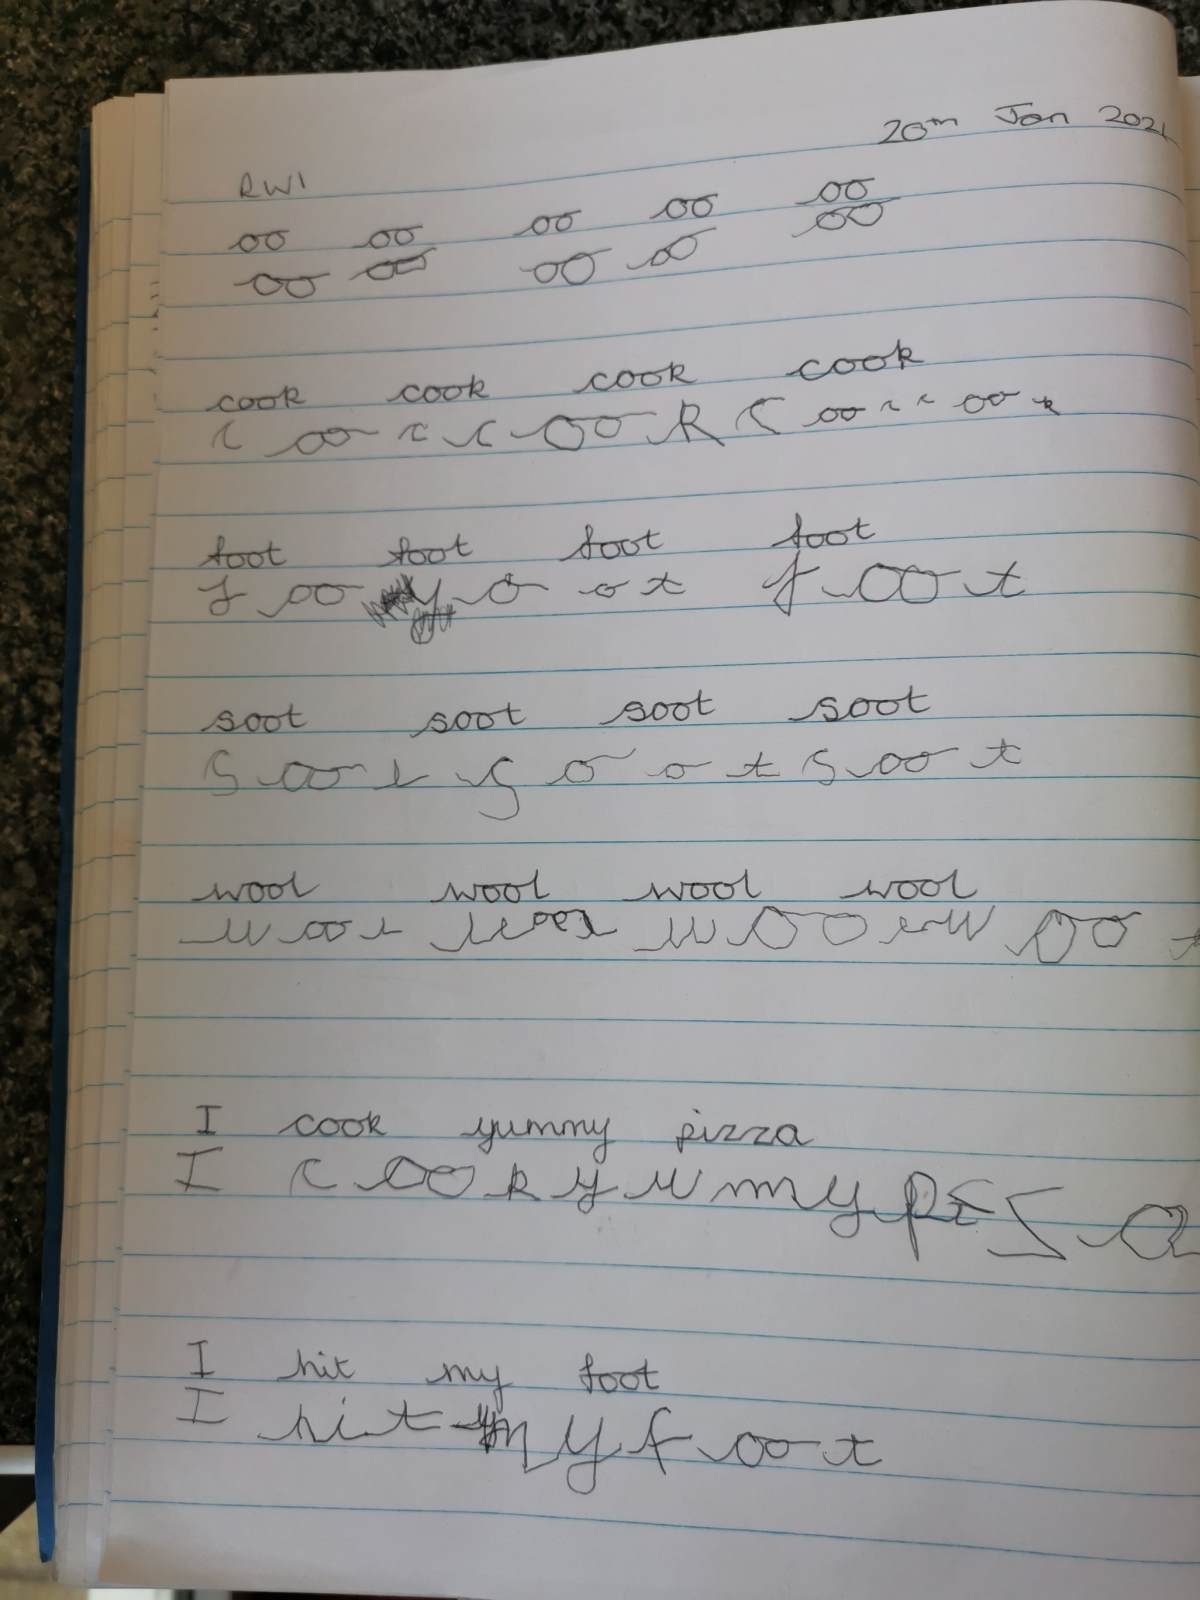 20th Jan 2021
RWI
oo oo oo oo oo
oo oo oo oo oo
cook cook cook cook
c oo c c oo k c oo c c oo k
foot foot foot foot
f oo y o o t f oo t
soot soot soot soot
s oo t s o o t s oo t
wool wool wool wool
w oo l w oo l w o o l w oo
I cook yummy pizza
I c oo k y u m m y p i z a
I hit my foot
I hit my f oo t